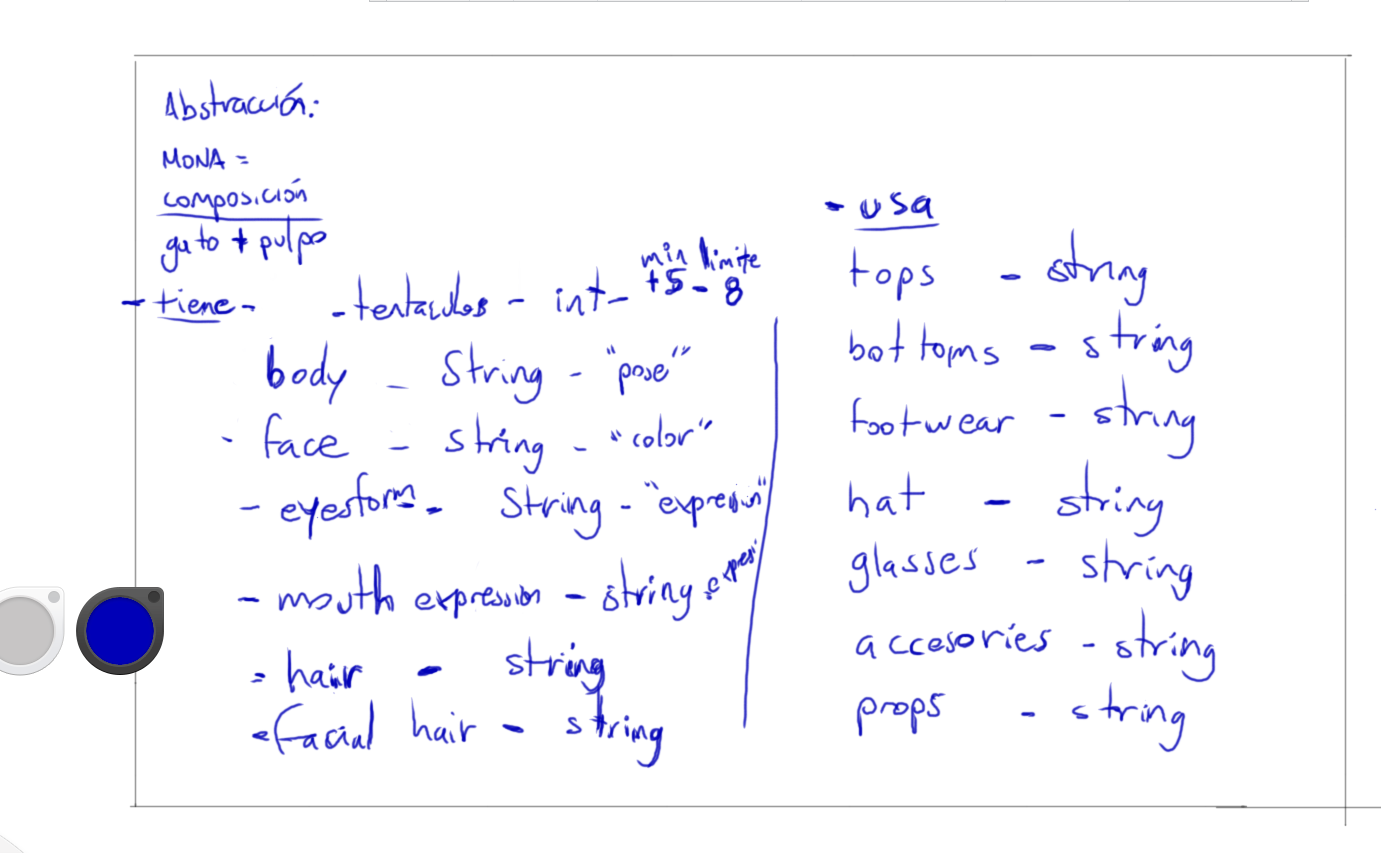 Abstracción:
MONA =
composición
gato + pulpo
- tiene - - tentaculos - int - min limite +5 - 8
body - String - "pose"
- face - string - "color"
- eyesform - String - "expresion"
- mouth expression - string - expresi
- hair - string
- facial hair - string
- usa
tops - string
bottoms - string
footwear - string
hat - string
glasses - string
accesories - string
props - string